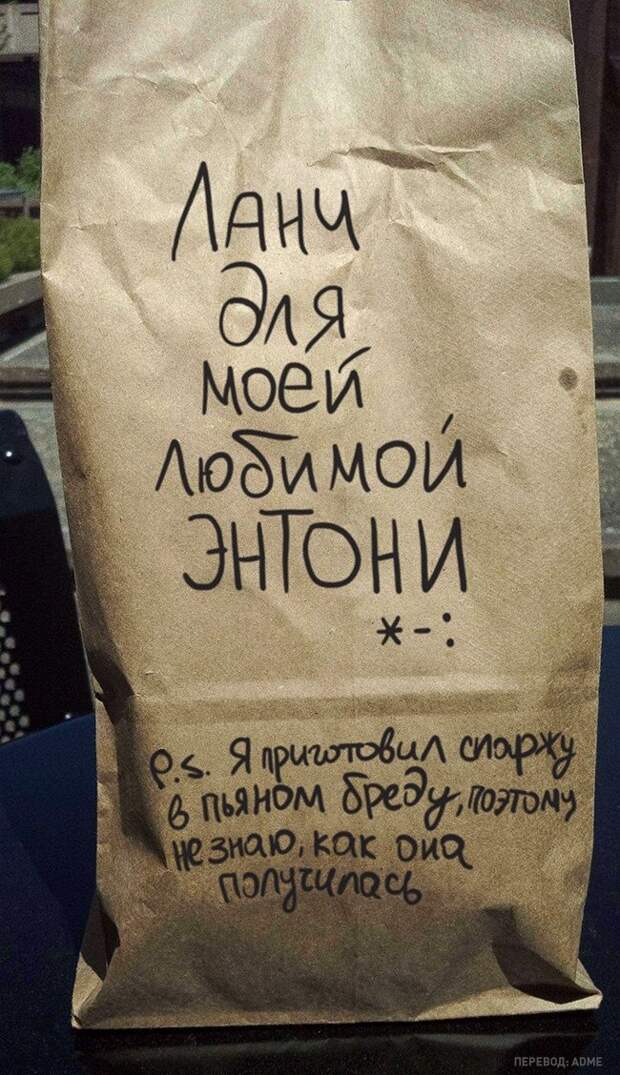 Ланч
для
моей
любимой
ЭНТОНИ
*-:
P.S. Я приготовил спаржу
в пьяном бреду, поэтому
не знаю, как она
получилась
ПЕРЕВОД: ADME